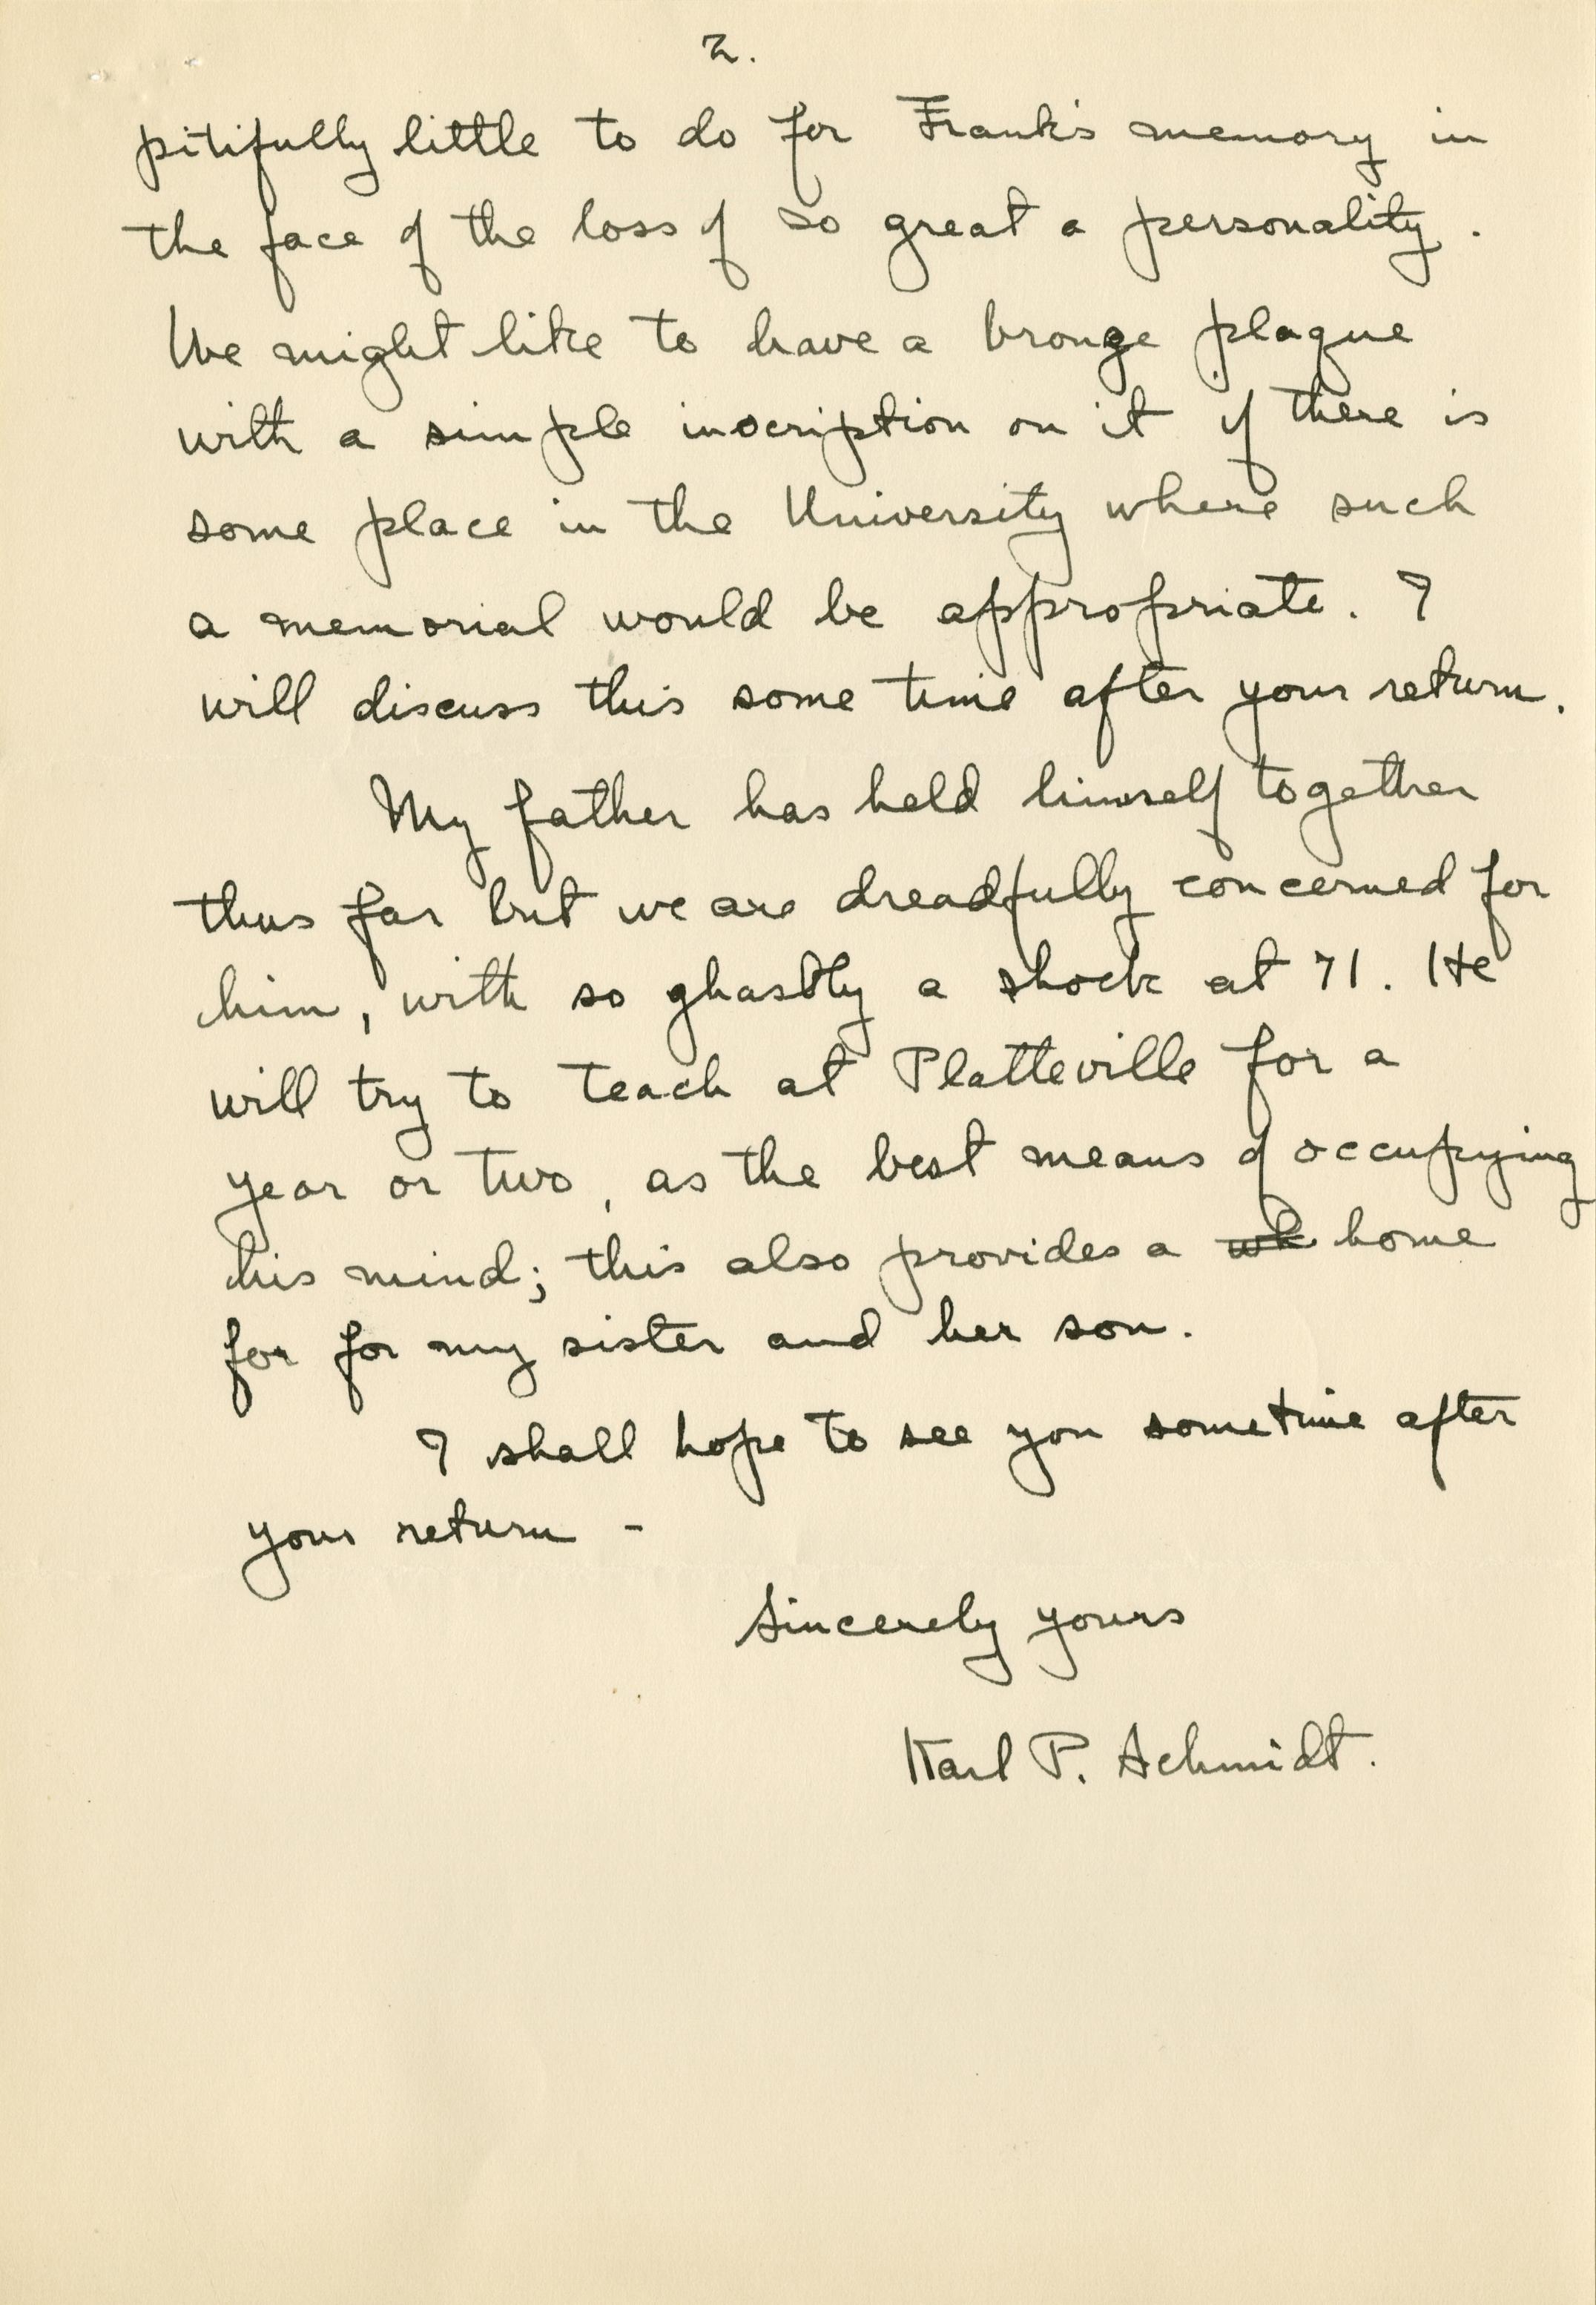 2.
pitifully little to do for Frank's memory in
the face of the loss of so great a personality.
We might like to have a bronze plaque
with a simple inscription on it if there is
some place in the University where such
a memorial would be appropriate. I
will discuss this some time after your return.
My father has held himself together
thus far but we are dreadfully concerned for
him, with so ghastly a shock at 71. He
will try to teach at Platteville for a
year or two, as the best means of occupying
his mind; this also provides a wh home
for for my sister and her son.
I shall hope to see you sometime after
your return -
Sincerely yours
Karl P. Schmidt.